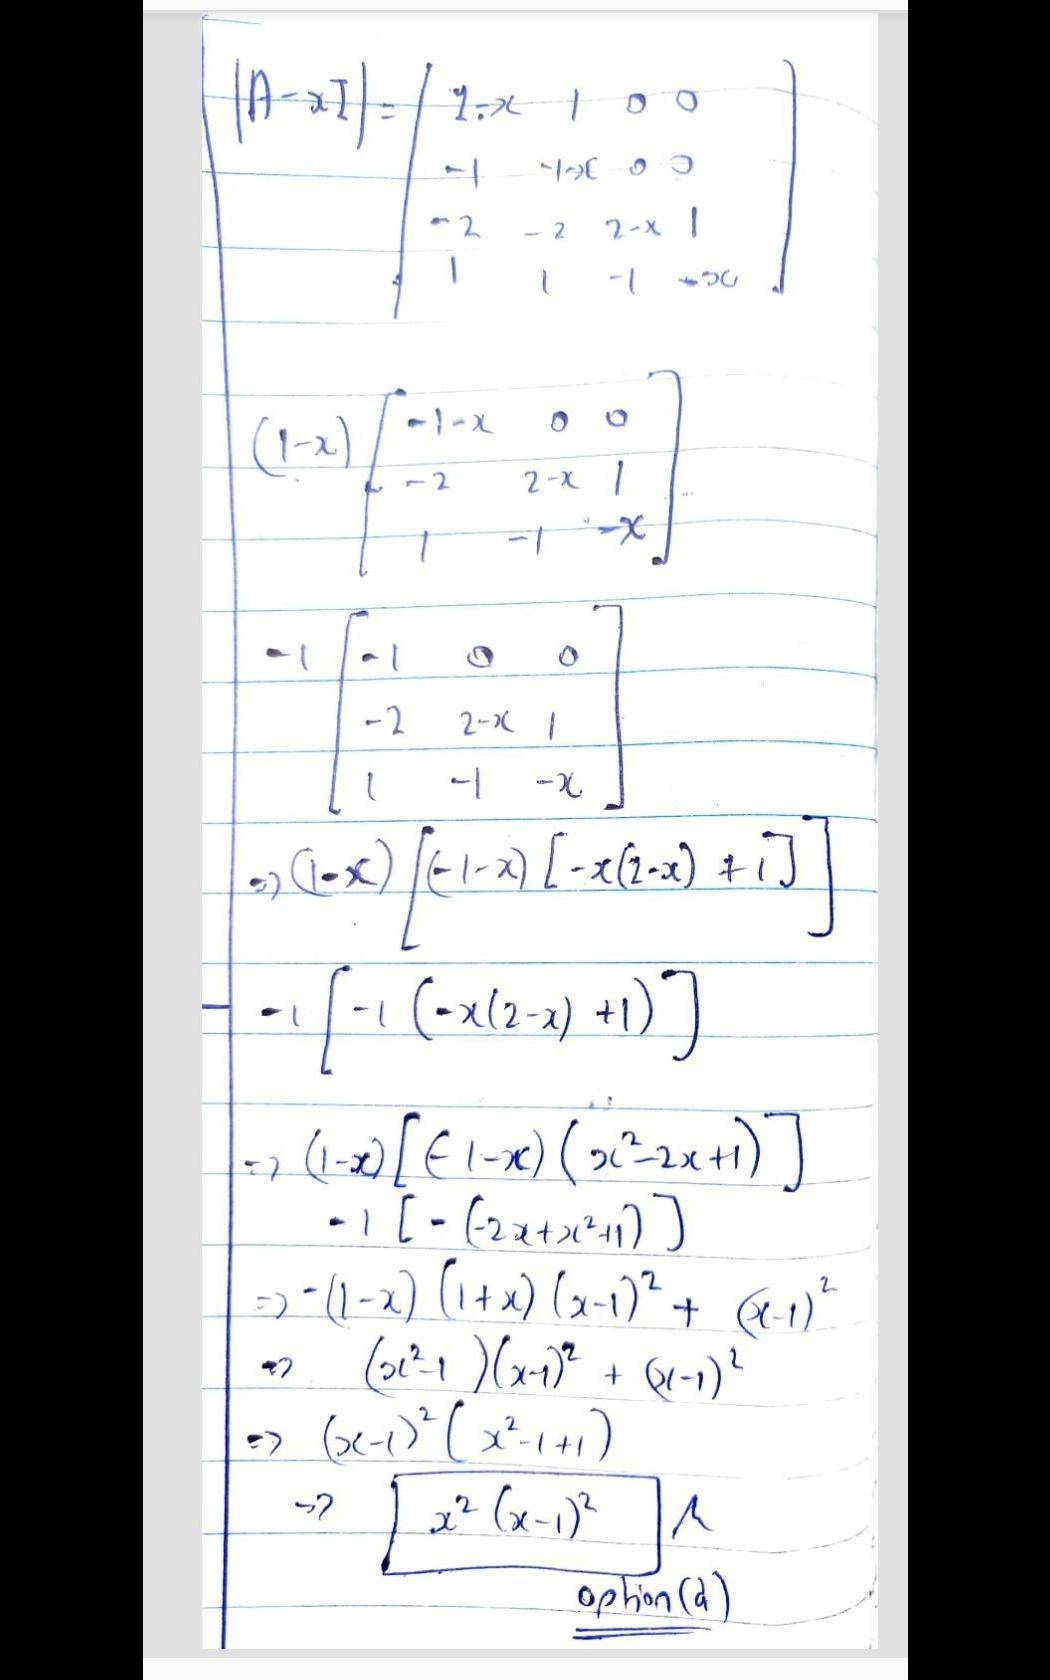 |A-xI| = [ 1-x 1 0 0
-1 -1-x 0 0
-2 -2 2-x 1
1 1 -1 -x ]
(1-x) [ -1-x 0 0
-2 2-x 1
1 -1 -x ]
-1 [ -1 0 0
-2 2-x 1
1 -1 -x ]
=> (1-x) [(-1-x) [-x(2-x) +1]]
-1 [-1 (-x(2-x) +1)]
=> (1-x) [(-1-x) (x²-2x+1)]
-1 [-(-2x+x²+1)]
=> -(1-x) (1+x) (x-1)² + (x-1)²
=> (x²-1) (x-1)² + (x-1)²
=> (x-1)² (x²-1+1)
=> x² (x-1)²
option (d)